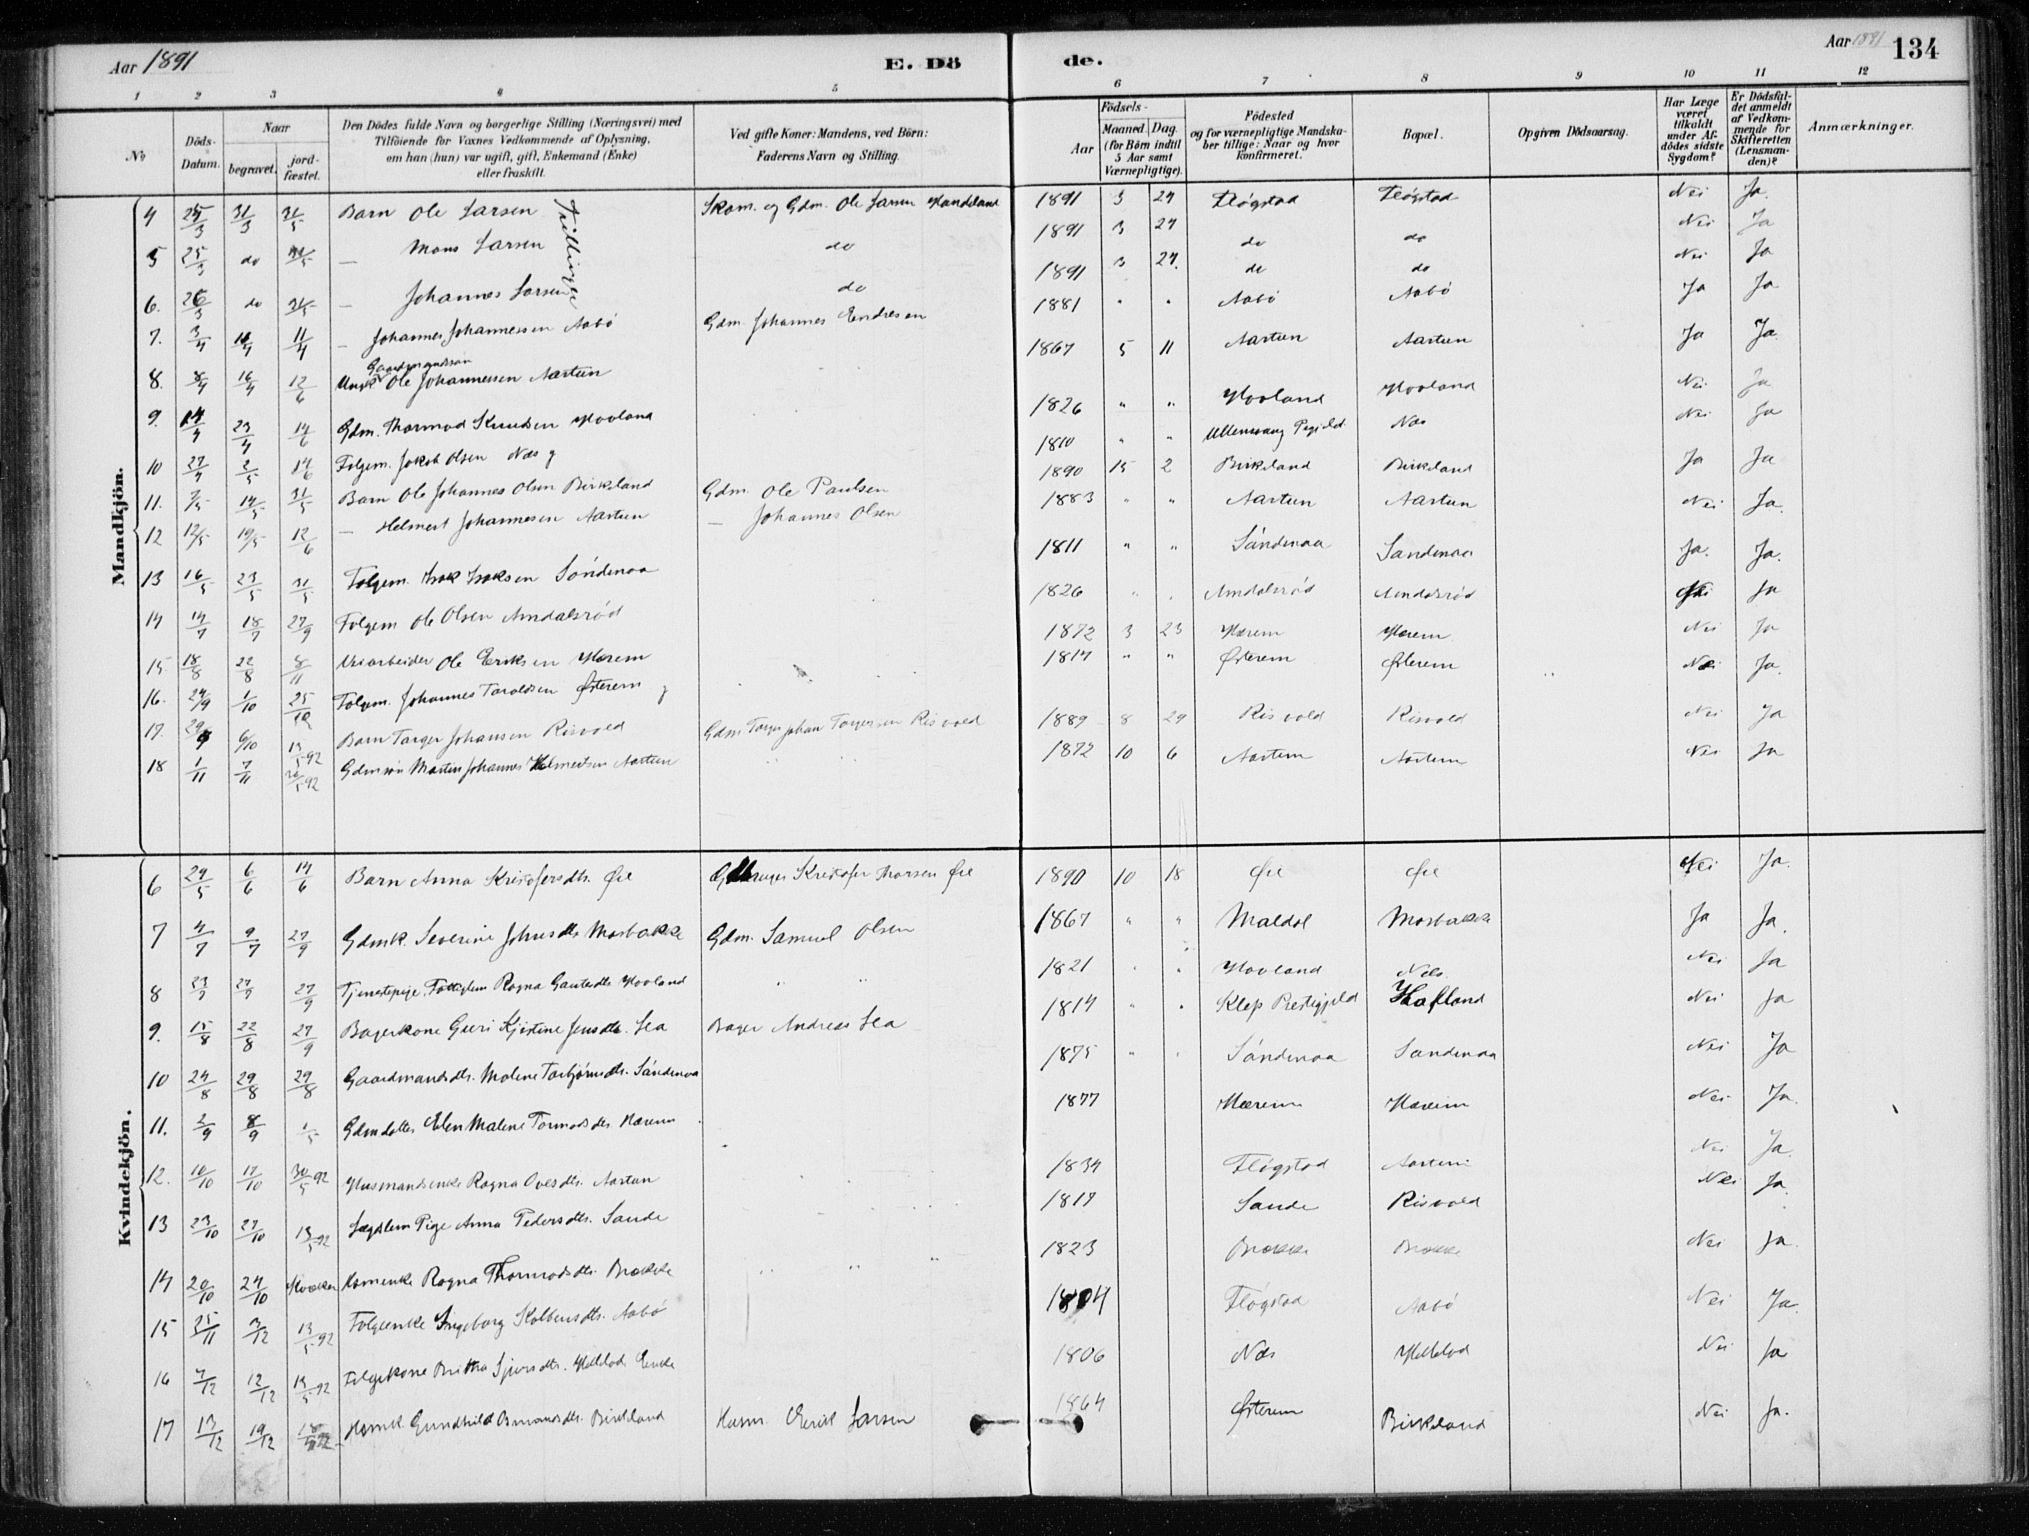 Aar 1891 E. Dö de. Aar 1891 134
1 2 3 4 5 6 7 8 9 10 11 12
No
Döds-Datum.
Naar
begravet. jordfæstet.
Den Dödes fulde Navn og borgerlige Stilling (Næringsvei) med
Tilföiende for Voxnes Vedkommende af Oplysning,
om han (hun) var ugift, gift, Enkemand (Enke)
eller fraskilt.
Ved gifte Koner: Mandens, ved Börn:
Faderens Navn og Stilling.
Födsels-
Aar Maaned. Dag.
(for Börn indtil
5 Aar samt
Værnepligtige).
Födested
og for værnepligtige Mandskaber tillige: Naar og hvor
konfirmeret.
Bopæl.
Opgiven Dödsaarsag.
Har Læge
været
tilkaldt
under Afdödes sidste
Sygdom?
Er Dödsfaldet anmeldt
af Vedkommende for
Skifteretten
(Lensmanden)?
Anmærkninger.
Mandkjön.
4 25/3 31/3 31/5 Barn Ole Larsen Skom. og Gdm. Ole Larsen 1891 3 24 Fløgstad Fløgstad Nei Ja.
Trillinger
5 25/3 do 31/5 — Mons Larsen do 1891 3 24 do do Nei Ja
6. 26/3 do 31/5 — Johannes Larsen do 1891 3 24. do do Nei Ja
7. 3/4 11/4 — Johannes Johannessen Aabø Gdm. Johannes Endresen 1881 " " Aabø Aabø Ja Ja
8. 8/4 16/4 12/6 Ungk Gaardmandssøn Ole Johannessen Aartun 1867 5 11 Aartun Aartun Ja Ja.
9. 14/4 23/4 14/6 Gdm. Thormod Knudsen Hovland 1826 " " Hovland Hovland Nei Ja
10 27/4 2/5 14/6 Folgem. Jakob Olsen Næs g 1810 " " Ullensvang Næs Nei Ja
11. 7/5 14/5 31/5 Barn Ole Johannes Olsen Birkeland Gdm. Ole Paulsen 1890 15 2 Birkeland Birkeland Ja Ja
12 12/5 19/5 12/6 — Helmert Johannesen Aartun — Johannes Olsen 1883 " " Aartun Aartun Nei Ja.
13 16/5 23/5 31/5 Folgem. Isak Isaksen Søndenaa 1811 " " Søndenaa Søndenaa Ja. Ja.
14 14/7 18/7 27/9 Folgem Ole Olsen Amdalsrød 1826 " " Amdalsrød Amdalsrød Nei Ja
15 18/8 22/8 8/11 Ole Eriksen Hærem 1872 3 23 Hærem Hærem Nei Ja
16. 24/9 1/10 25/10 Folgem. Johannes Taraldsen Østerem g 1817 " " Østerem Østerem Nei Ja.
17. 29/9 6/10 13/5 92 Barn Targer Johansen Risvold Gdm Johan Risvold 1889 8 29 Risvold Risvold Nei Ja
18 1/11 7/11 26/5 92 Gdmssøn Martin Johannes Helmertsen Aartun 1872 10 6 Aartun Aartun Nei Ja
Kvindekjön.
6 29/5 6/6 14/6 Barn Anna Kristofersdtr. Øie Kristofer Thorsen Øie 1890 10 18 Øie Øie Nei Ja.
7 4/7 9/7 27/9 Gdmk. Severine Johnsdtr Mosbakke Gdm. Samuel Olsen 1867 " " Maldal Mosbakke Ja Ja.
8 23/7 27/7 27/9 Tjenestepige, Ragna Gautesdtr Hovland 1821 " " Hovland Næs Nei Ja
9. 15/8 22/8 27/9 Bagerkone Guri Kjistine Jensdtr. Sea Bager Andreas Sea 1814 " " Klep Prestegjeld Hafland Nei Ja
10 24/8 29/8 29/8 Gaardmandsdtr. Malene Torbjørnsdtr. Søndenaa 1875 " " Søndenaa Søndenaa Nei Ja
11. 2/9 8/9 1/5 Gdmdatter Elen Malene Tormodsdtr Hærem 1877 Hærem Hærem Nei Ja.
12. 10/10 17/10 30/5 92 Husmandsenke Ragna Ovesdtr. Aartun 1834 Fløgstad Aartun Nei Ja.
13 23/10 27/10 13/5 92 Lægdslem Pige Anna Pedersdtr. Sande 1817 Sande Risvold Nei Ja.
14 20/10 24/10 Kvæker Hsmenke Ragna Thormodsdtr. Brække 1823 Brække Brække Nei Ja.
15 25/11 3/12 13/5 92 Folgeenke Ingeborg Kolbensdtr. Aabø 1804 Fløgstad Aabø Nei Ja.
16 7/12 12/12 13/5 92 Folgekone Britha Sjursdtr. Enke 1806 Næs Nei Ja
17 13/12 19/12 Hsmk. Gundhild Osmundsdtr. Birkeland Husm. Eerik Larsen 1864 Østerem Birkeland Nei Ja.